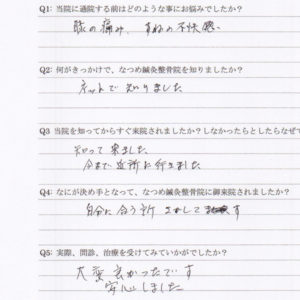 Q1: 当院に通院する前はどのような事にお悩みでしたか？
膝の痛み、すねの不快感、
Q2: 何がきっかけで、なつめ鍼灸整骨院を知りましたか？
ネットで知りました
Q3 当院を知ってからすぐ来院されましたか？しなかったらとしたらなぜで
知って来ました
今まで近所に行きました
Q4: なにが決め手となって、なつめ鍼灸整骨院に御来院されましたか？
自分に合う所 さがして
す
Q5: 実際、問診、治療を受けてみていかがでしたか？
大変良かったです
安心しました